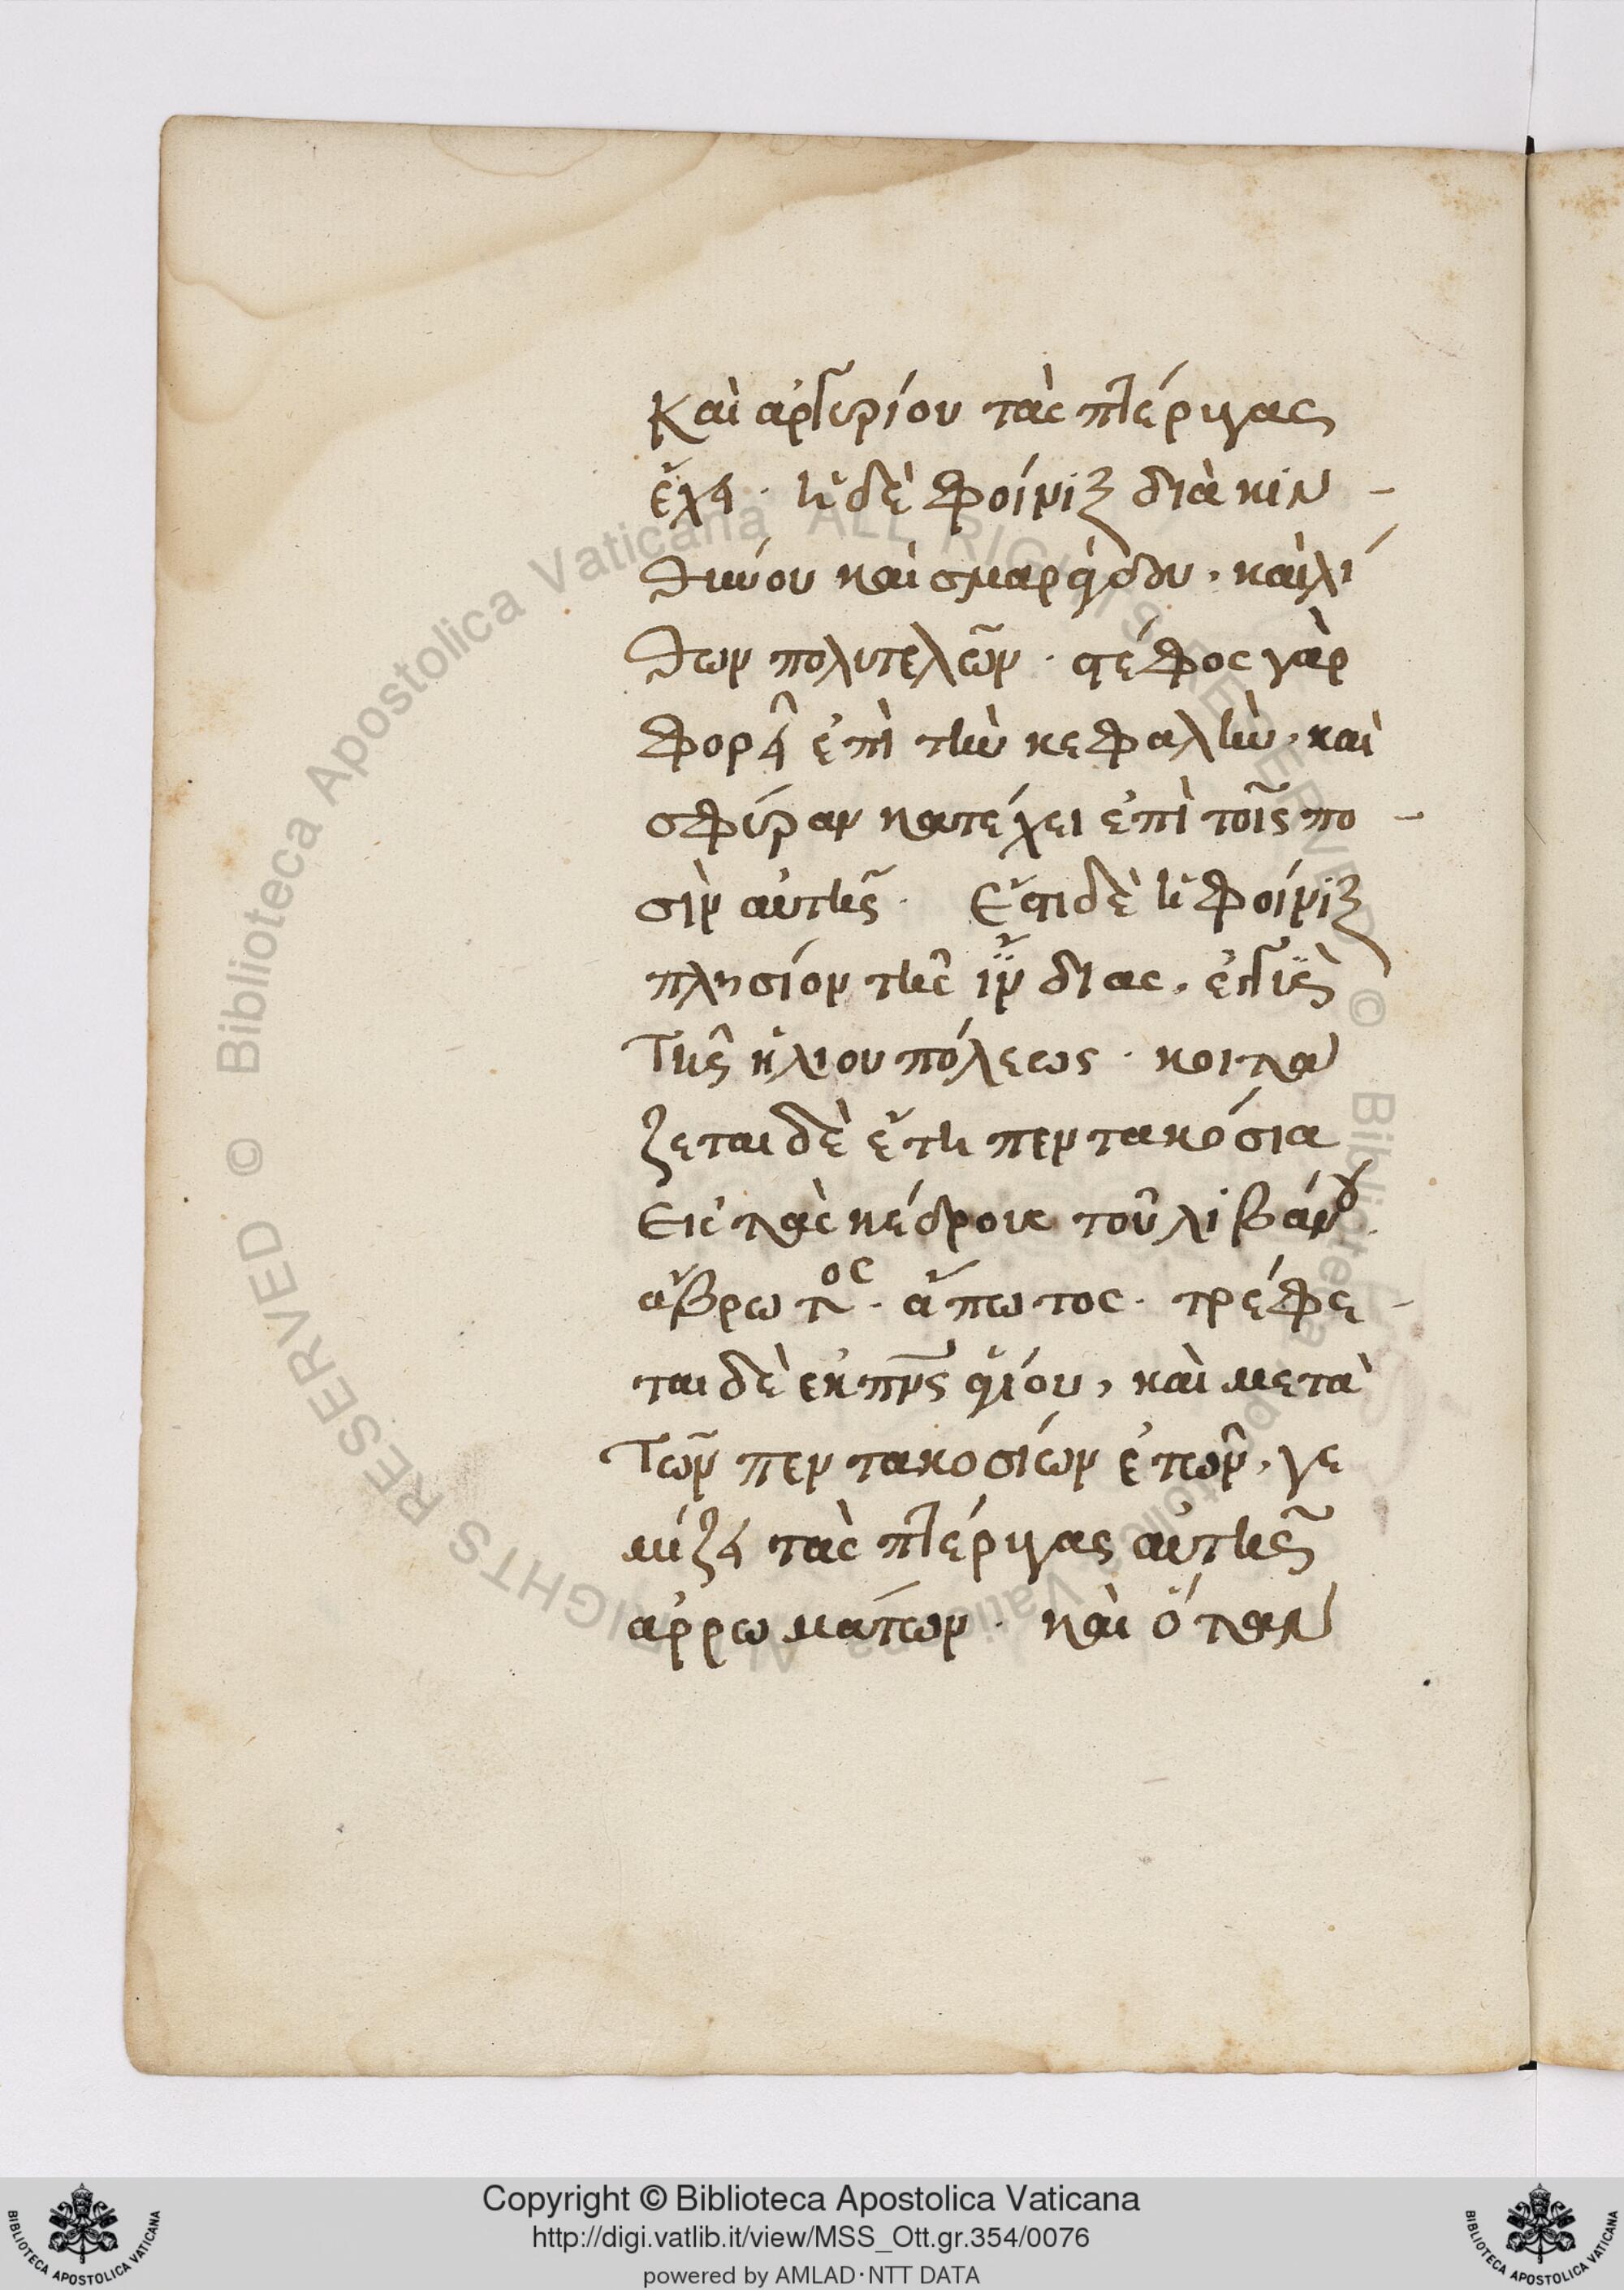 Καὶ ἀργυρίου τὰς πτέρυγας
ἔχει. ἡ δὲ φοίνιξ διὰ κιν -
θινύου καὶ σμαράγδου, καὶ λί
θων πολυτελῶν. στέφος γὰρ
φορεῖ ἐπὶ τὴν κεφαλὴν, καὶ
σφύραν κατέχει ἐπὶ τοῖς πο -
σὶν αὐτῆς. Ἔστι δὲ ἡ φοίνιξ
πλησίον τῆς ἰνδίας, ἐγγὺς
Τῆς ἡλίου πόλεως. κοιτα
ζεται δὲ ἔτη πεντακόσια
Εἰς τὰς κέδροις τοῦ λιβάνου.
ἄβρωτος. ἄπωτος. τρέφε -
ται δὲ ἐκ πνς ἁγίου, καὶ μετὰ
Τῶν πεντακοσίων ἐτῶν, γε
μίζει τὰς πτέρυγας αὐτῆς
ἀρρωμάτων. καὶ ὅταν
© Biblioteca Apostolica Vaticana ALL RIGHTS RESERVED © Biblioteca Apostolica Vaticana ALL RIGHTS RESERVED
Copyright © Biblioteca Apostolica Vaticana
http://digi.vatlib.it/view/MSS_Ott.gr.354/0076
powered by AMLAD·NTT DATA
BIBLIOTECA APOSTOLICA VATICANA
BIBLIOTECA APOSTOLICA VATICANA